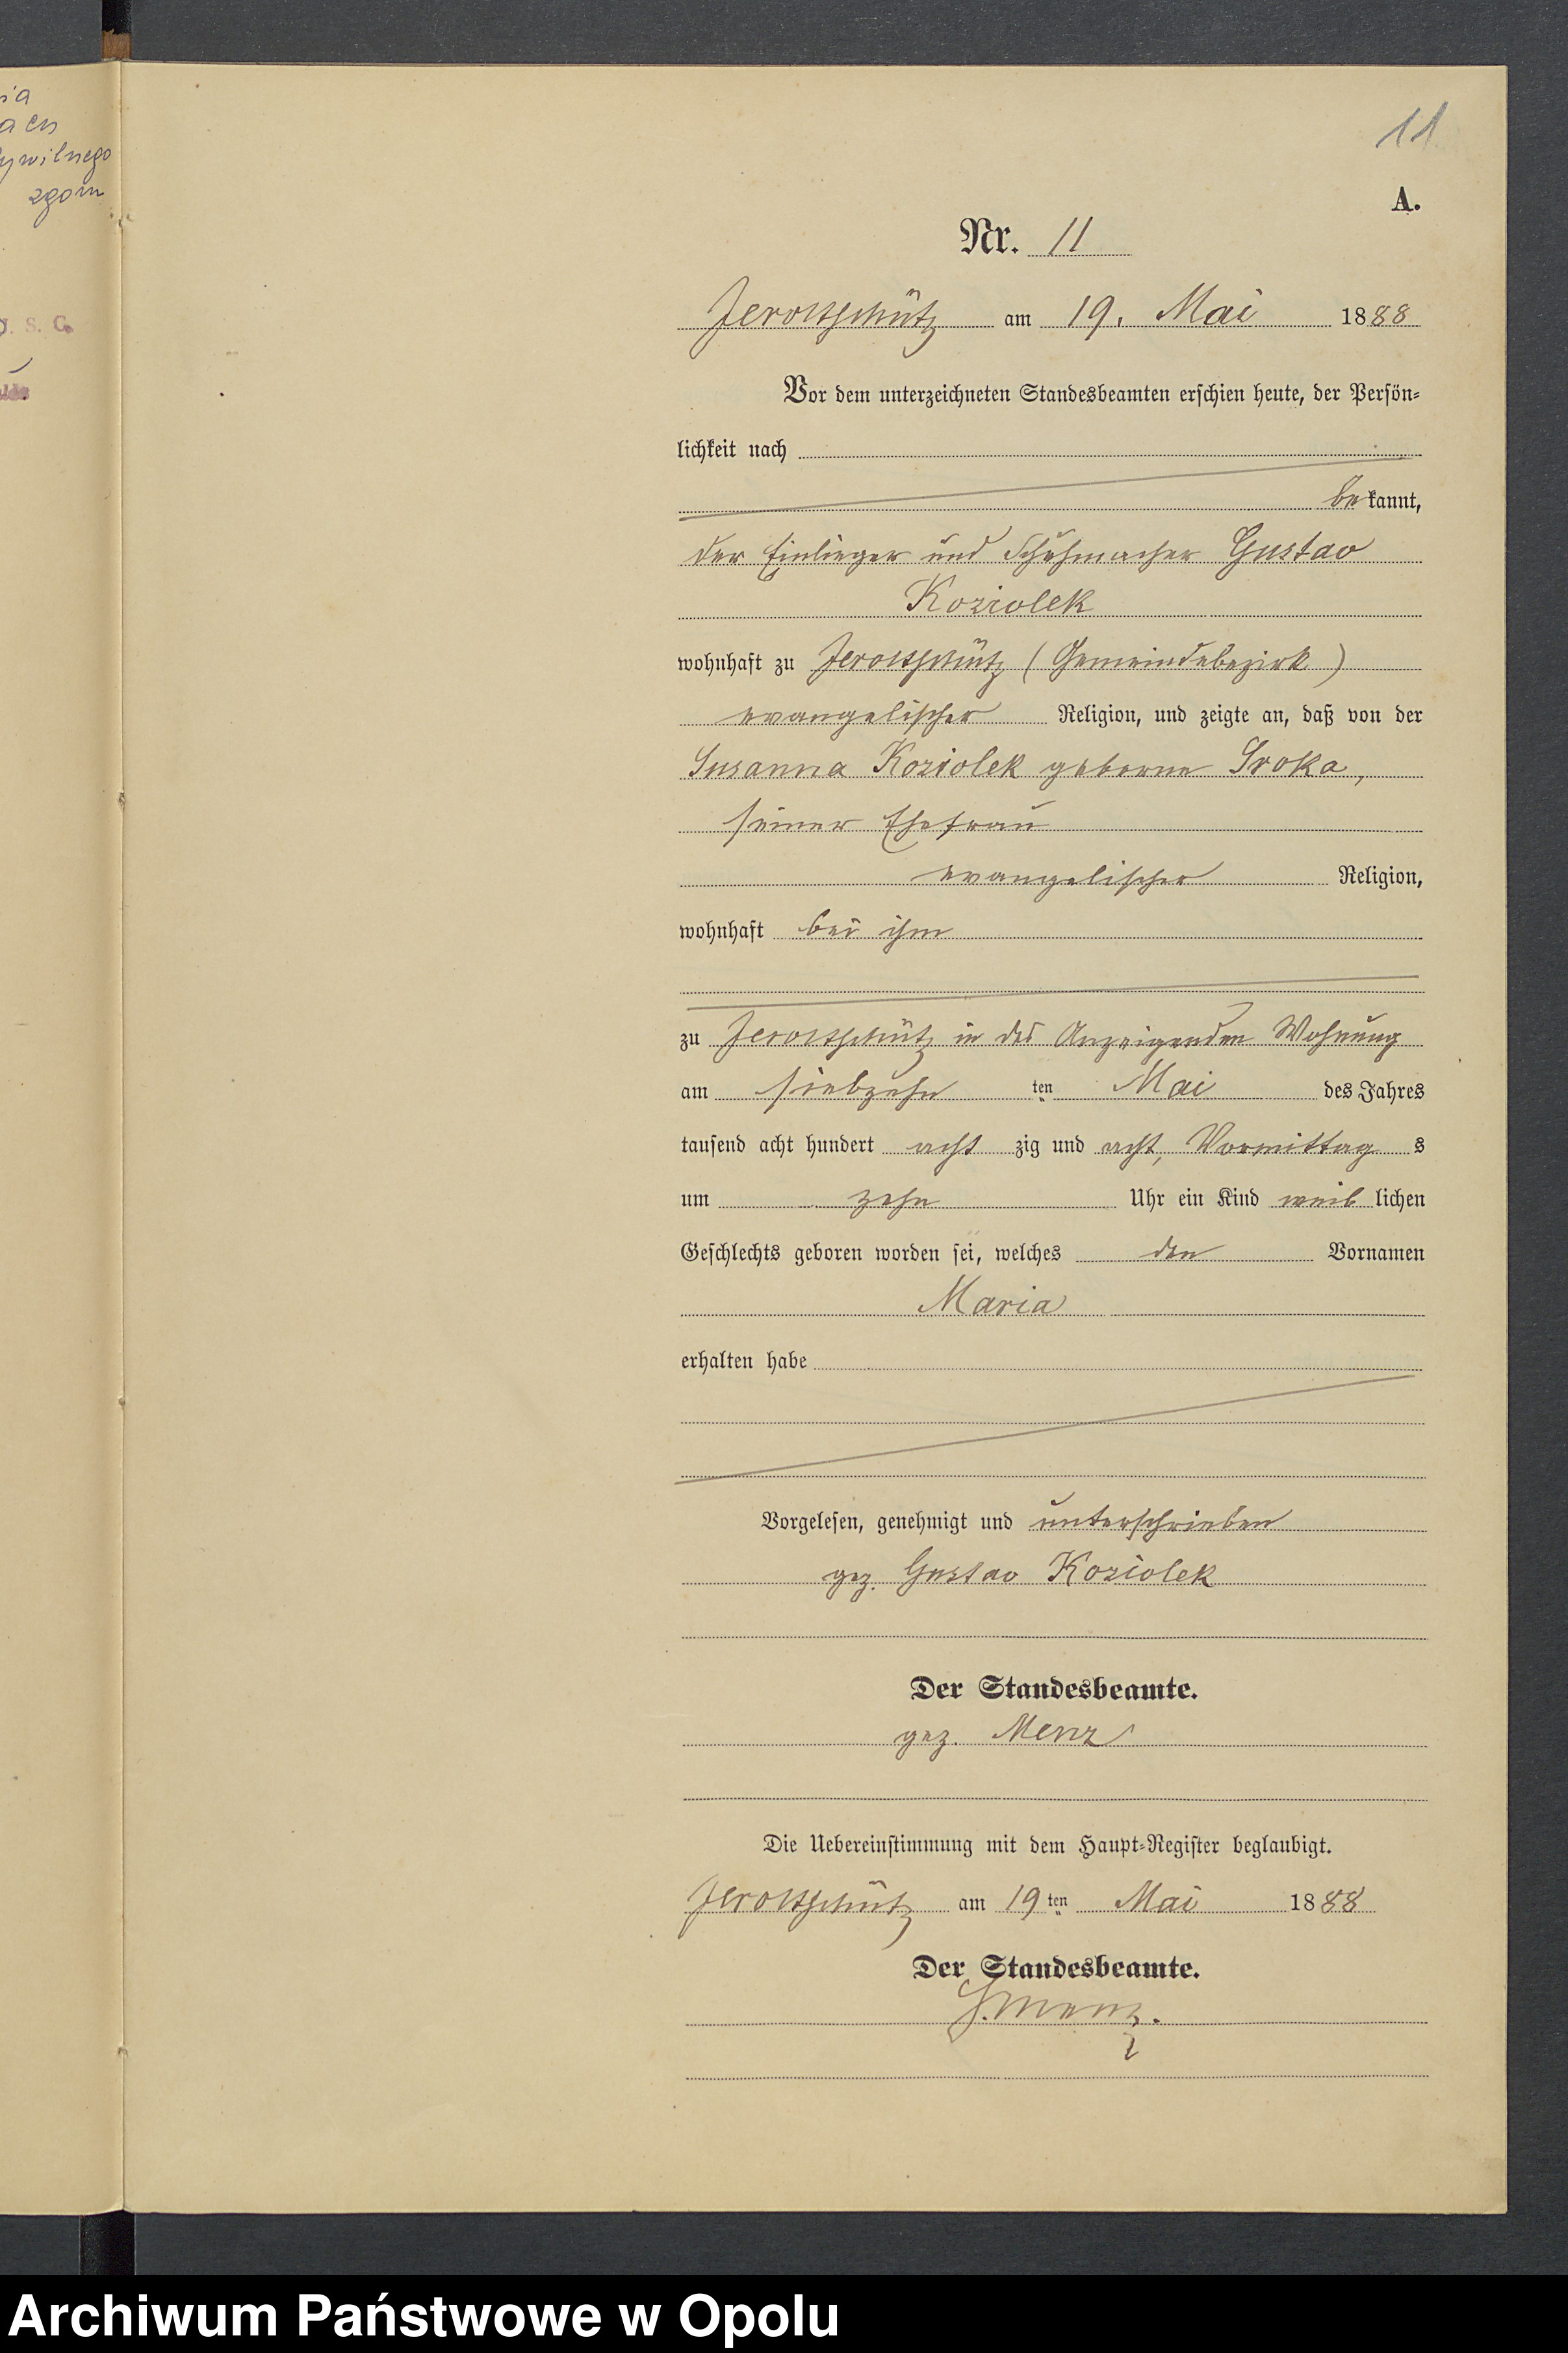 ia
ach
ywilnego
zgom
S. C.
11
A.
Nr. 11
Jeroltschütz am 19. Mai 1888
Vor dem unterzeichneten Standesbeamten erschien heute, der Persön-
lichkeit nach
be kannt,
der Einlieger und Schuhmacher Gustav
Koziolek
wohnhaft zu Jeroltschütz (Gemeindebezirk)
evangelischer Religion, und zeigte an, daß von der
Susanna Koziolek geborne Sroka,
seiner Ehefrau
evangelischer Religion,
wohnhaft bei ihm
zu Jeroltschütz in des Anzeigenden Wohnung
am siebzehn ten Mai des Jahres
tausend acht hundert acht zig und acht, Vormittag s
um zehn Uhr ein Kind weib lichen
Geschlechts geboren worden sei, welches den Vornamen
Maria
erhalten habe
Vorgelesen, genehmigt und unterschrieben
gez. Gustav Koziolek
Der Standesbeamte.
gez. Menz
Die Uebereinstimmung mit dem Haupt-Register beglaubigt.
Jeroltschütz am 19 ten Mai 1888
Der Standesbeamte.
Menz.
Archiwum Państwowe w Opolu